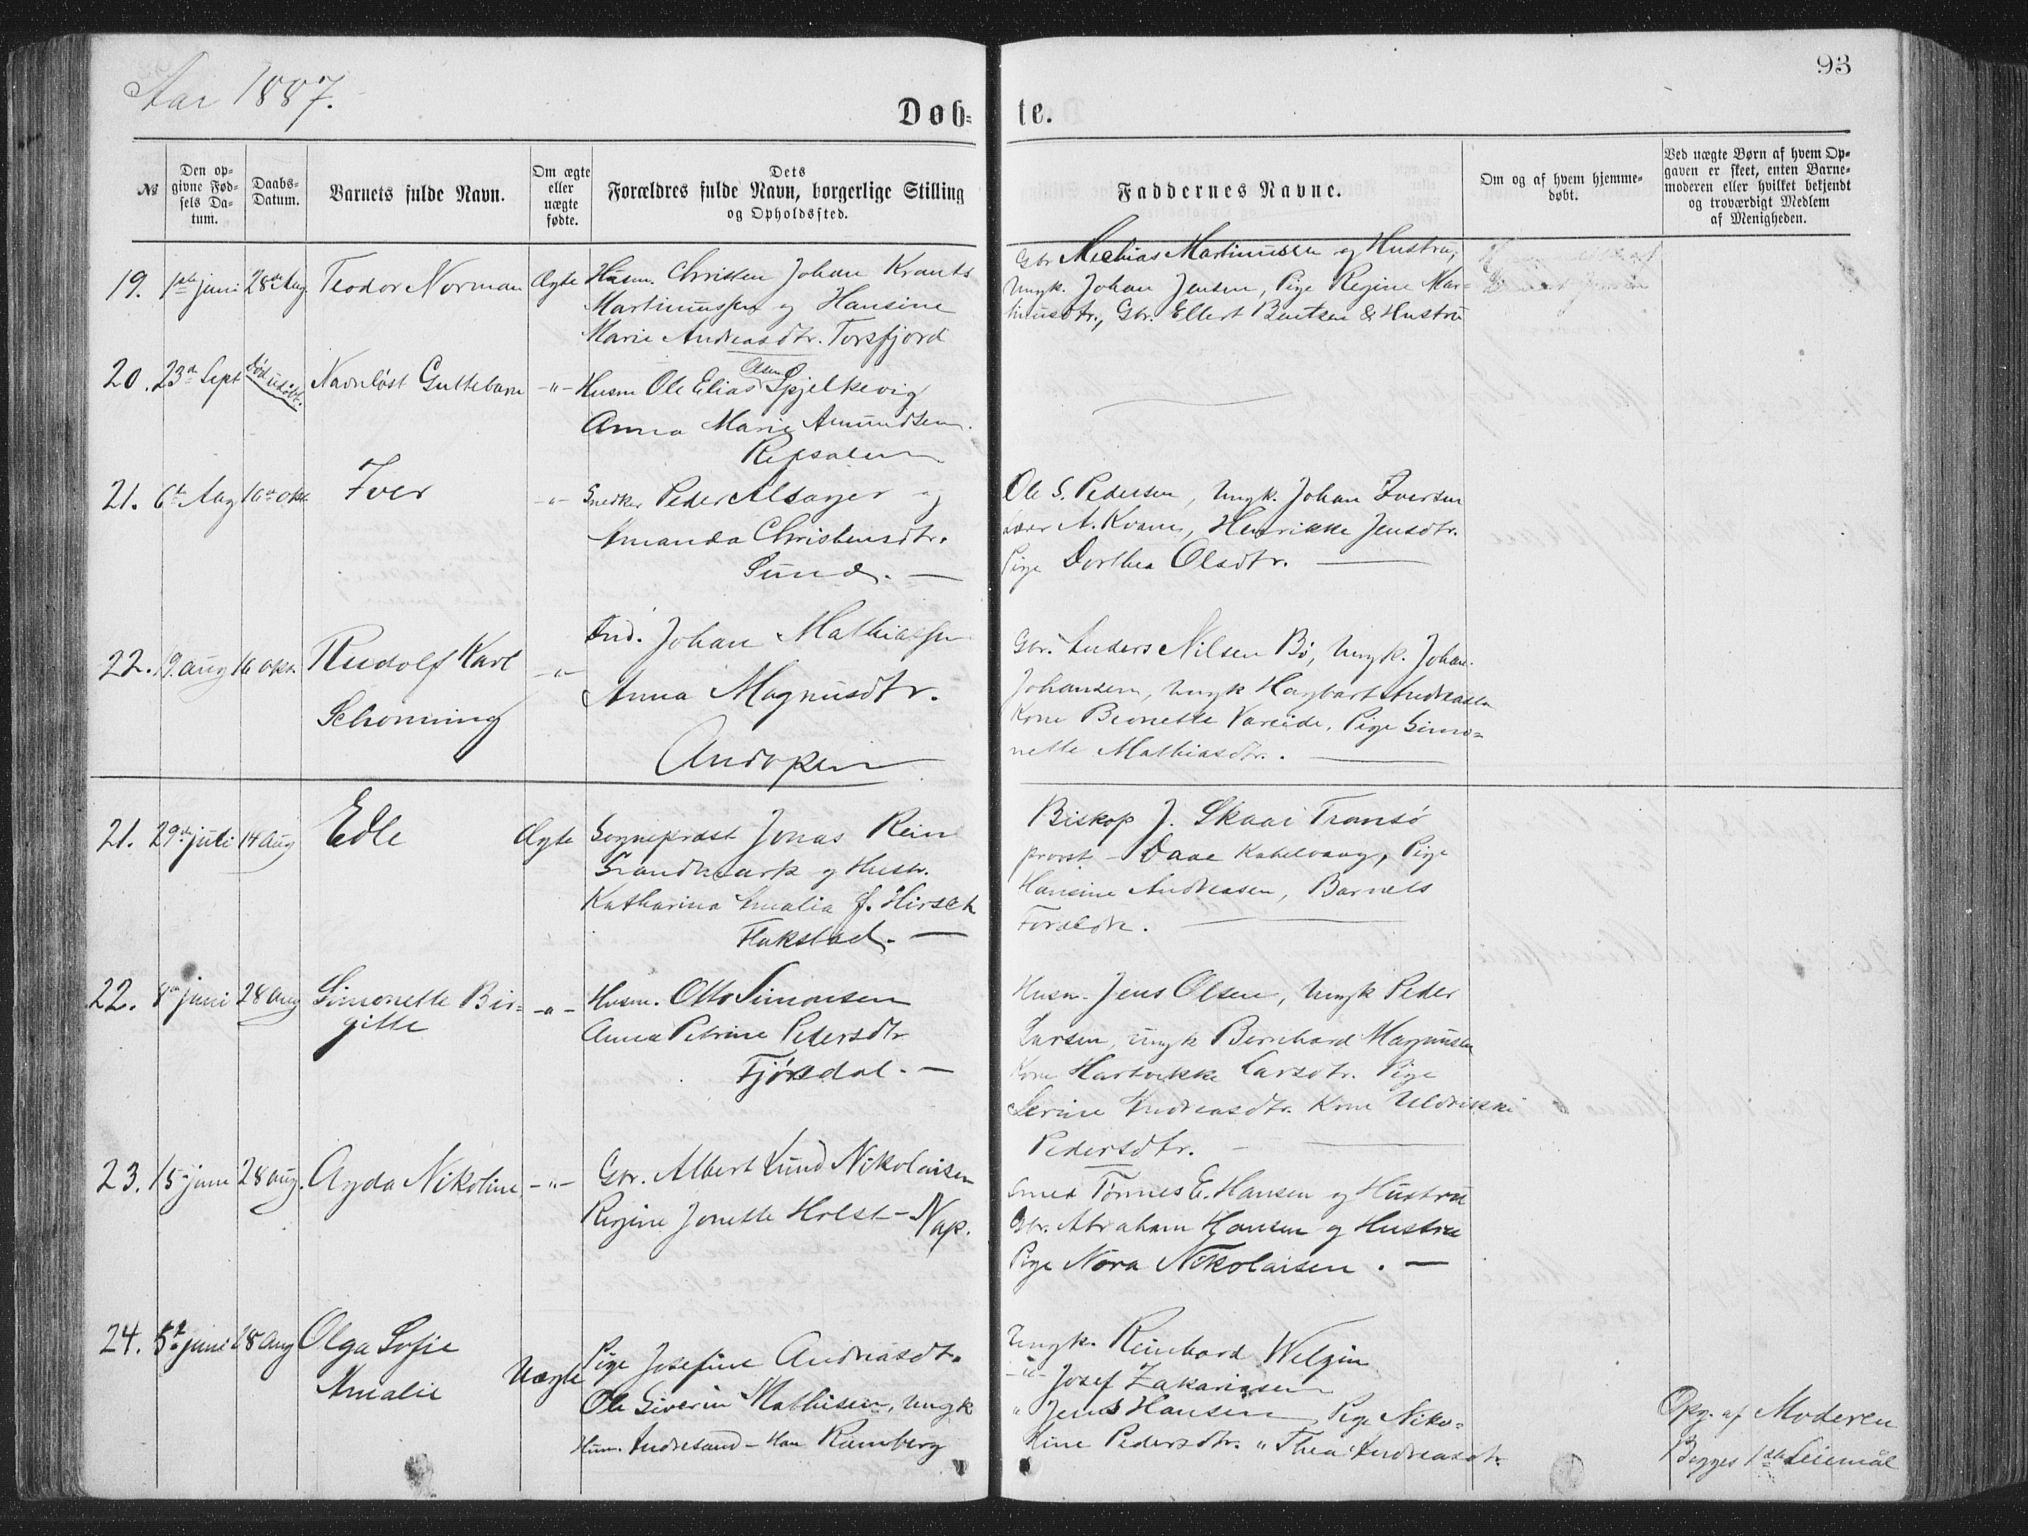 Aar 1887.
93
Døb-
te.
№
Den op-
givne Fød-
sels Da-
tum.
Daabs-
Datum.
Barnets fulde Navn.
Om ægte
eller
uægte
fødte.
Dets
Forældres fulde Navn, borgerlige Stilling
og Opholdssted.
Faddernes Navne.
Om og af hvem hjemme-
døbt.
Ved uægte Børn af hvem Op-
gaven er skeet, enten Barne-
moderen eller hvilket bekjendt
og troværdigt Medlem
af Menigheden.
19. 1ste juni 28de Aug. Teodor Norman Ægte Husm. Christen Johan Krants
Martinussen og Hansine
Marie Andreasdtr. Torsfjord
Gbr. Mathias Martinussen og Hustru,
Ungk. Johan Jensen, Pige Regine Mar-
tinusdtr., Gbr. Ellert Bentsen & Hustru
20. 23d Sept død udøbt. Navnløst Guttebarn -"- Husm Ole Elias Olsen Spjelkevig
Anna Marie Amundsen.
21. 6te Aug 16de okt Iver -"- Snedker Peder Alsager og
Amanda Christensdtr.
Sund. —
Ole S. Pedersen, Ungk. Johan Iversen
Lærer A. Kvam, Henrikke Jensdtr.
Pige Dorthea Olsdtr. —
22. 19 aug 16 okt. Rudolf Karl
Schønning -"- Ind. Johan Mathiassen
Anna Magnusdtr.
Andopen
Gbr. Anders Nilsen Bø, Ungk. Johan
Johansen, Ungk Hagbart Andreassen
Kone Benette Vareide, Pige Simo-
nette Mathiasdtr. —
21. 29de juli 14 Aug Edle Ægte Sognepræst Jonas Rein
Grandmark og Hustr.
Katharina Amalia f. Hirsch
Flakstad. —
Biskop J. Skaar Tromsø
provst - Daae Kabelvaag, Pige
Hansine Andreasen, Barnets
Forældre.
22. 8de juni 28 Aug Simonette Bir-
gitte -"- Husm. Otto Simonsen
Anna Petrine Pedersdtr
Fjørdal. —
Husm. Jens Olsen, Ungk Peder
Larsen, ungk Bernhard Magnussen
Kone Hartvikke Larsdtr. Pige
Serine Andreasdtr. Kone Uldrikke
Pedersdtr.
23. 15 juni 28 aug. Agda Nikoline, -"- Gbr. Albert Lund Nikolaisen
Regine Jonette Holst - Nap.
Smed Tønnes E. Hansen og Hustru
Gbr. Abraham Hansen og Hustru
Pige Nora Nikolaisen. —
24. 5te juni 28 Aug Olga Sofie
Amalie Uægte Pige Josefine Andreasdtr.
Ole Siverin Mathisen, Ungk
Hun. Andresand - Han Ramberg
Ungk. Reinhard Welgin
-"- Josef Zakariasen
" Jens Hansen, Pige Niko-
line Pedersdtr. " Thea Andreasdtr.
Opg. af Moderen
Begges 1ste Leiermål